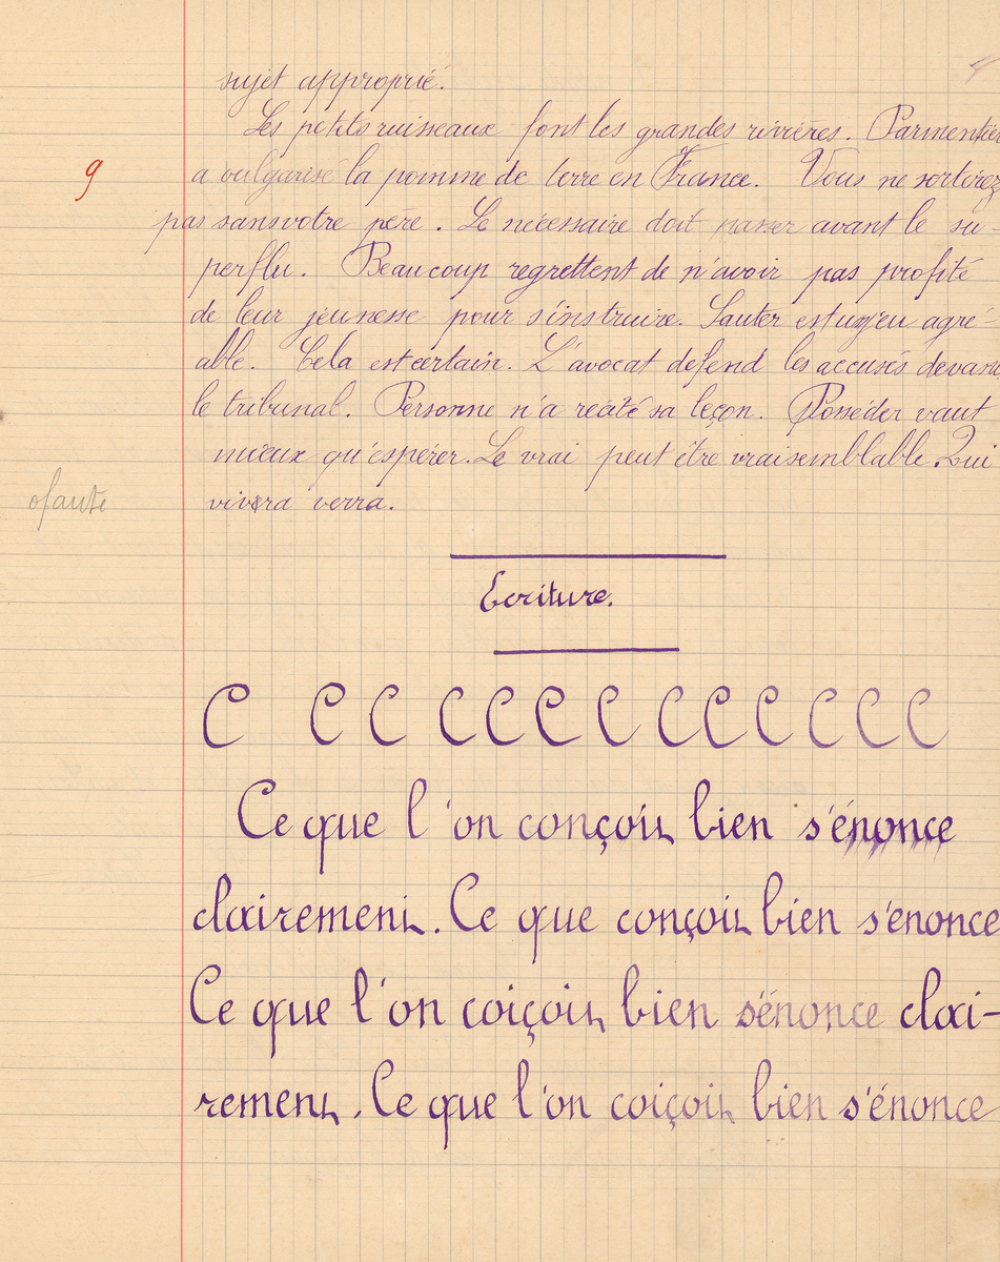 sujet approprié.
Les petits ruisseaux font les grandes rivières. Parmentier
9
a vulgarisé la pomme de terre en France. Vous ne sorterez
pas sans votre père. Le nécessaire doit passer avant le su-
perflu. Beaucoup regrettent de n'avoir pas profité
de leur jeunesse pour s'instruire. Sauter est un jeu agré-
able. Cela est certain. L'avocat défend les accusés devant
le tribunal. Personne n'a récité sa leçon. Posséder vaut
mieux qu'espérer. Le vrai peut être vraisemblable. Qui
0 faute
vivra verra.
Ecriture.
C C C C C C C C C C C C C
Ce que l'on conçoit bien s'énonce
clairement. Ce que conçoit bien s'enonce
Ce que l'on coiçoit bien s'énonce clai-
rement. Ce que l'on coiçoit bien s'énonce